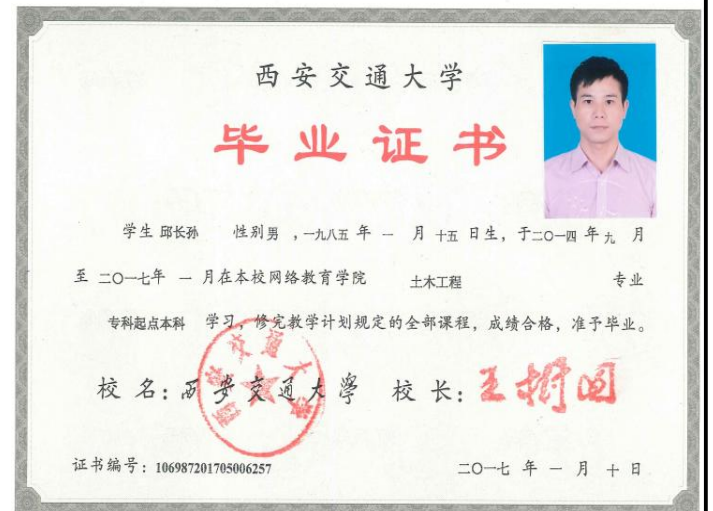 西安交通大学
毕业证书
学生 邱长孙 性别 男 ,一九八五 年 一 月 十五 日生, 于二○一四 年 九 月
至 二○一七年 一 月在本校网络教育学院 土木工程 专业
专科起点本科 学习, 修完教学计划规定的全部课程, 成绩合格, 准予毕业。
校 名: 西安交通大學 校 长: 王树国
西安交通大学
证书编号: 106987201705006257 二○一七 年 一 月 十 日